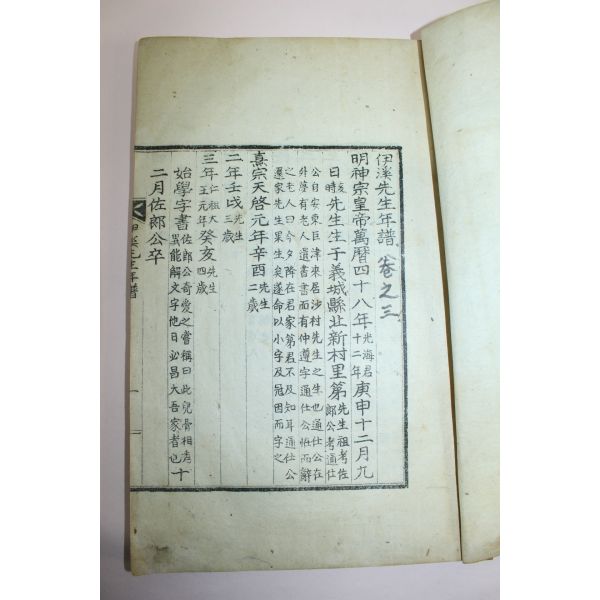 伊溪先生年譜 卷之三
明神宗皇帝萬曆四十八年光海君十二年庚申十二月九
日亥時先生生于義城縣北新村里第先生祖考佐郎公考通仕
公自安東巨津來居沙村先生之生也通仕公在
外夢有老人遺書書面有仲遵字通仕公恠而辭
之老人曰今夕降在君家第君不及知耳通仕公
還家先生果生矣遂命以小字及冠因而字之
熹宗天啓元年辛酉先生二歲
二年壬戌先生三歲
三年仁祖大王元年癸亥先生四歲
始學字書佐郎公奇愛之嘗稱曰此兒骨相秀異能解文字他日必昌大吾家者也十
二月佐郎公卒
伊溪先生年譜
一